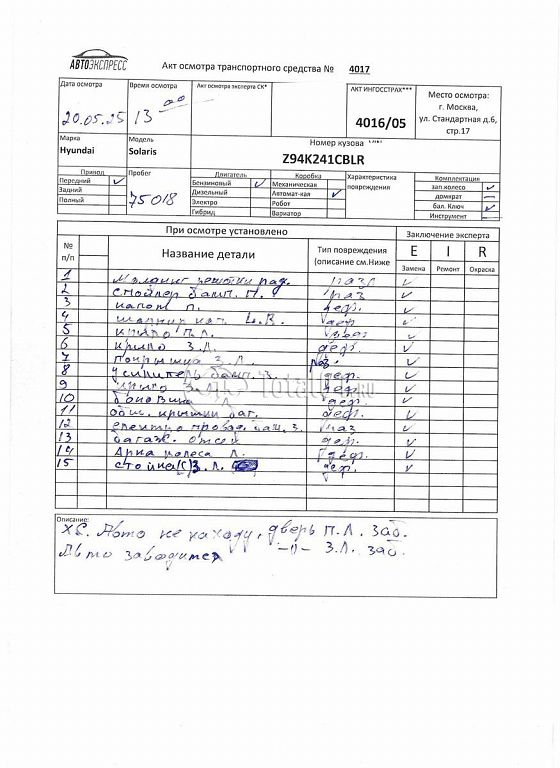 АВТОЭКСПРЕСС
Акт осмотра транспортного средства № 4017
Дата осмотра
20.05.25
Время осмотра
13 00
Акт осмотра эксперта СК*
АКТ ИНГОССТРАХ***
4016/05
Место осмотра:
г. Москва,
ул. Стандартная д.6,
стр.17
Марка
Hyundai
Модель
Solaris
Номер кузова
Z94K241CBLR
Привод
Передний ✓
Задний
Полный
Пробег
75018
Двигатель
Бензиновый ✓
Дизельный
Электро
Гибрид
Коробка
Механическая
Автомат-кая ✓
Робот
Вариатор
Характеристика
повреждения
Комплектация
зап.колесо ✓
домкрат
бал. Ключ ✓
Инструмент
При осмотре установлено
Заключение эксперта
№
п/п
Название детали
Тип повреждения
(описание см.Ниже
E I R
Замена Ремонт Окраска
1 решетки рад. ✓
2 спойлер бамп. П. раз ✓
3 капот п. деф. ✓
4 кап. деф ✓
5 крыло П.Л. ✓
6 крыло З.Л. деф. ✓
7 покрышка З.Л. раз. ✓
8 усилитель бамп. З. деф. ✓
9 З.Л. деф ✓
10 боковина Л деф. ✓
11 баг. деф. ✓
12 З. раз ✓
13 багаж. отсек деф. ✓
14 Арка колеса Л. деф. ✓
15 стойка(С)З.Л. деф. ✓
Total01.ru
Описание:
Авто не на ходу, дверь П.Л. заб.
Авто заводится -||- З.Л. заб.